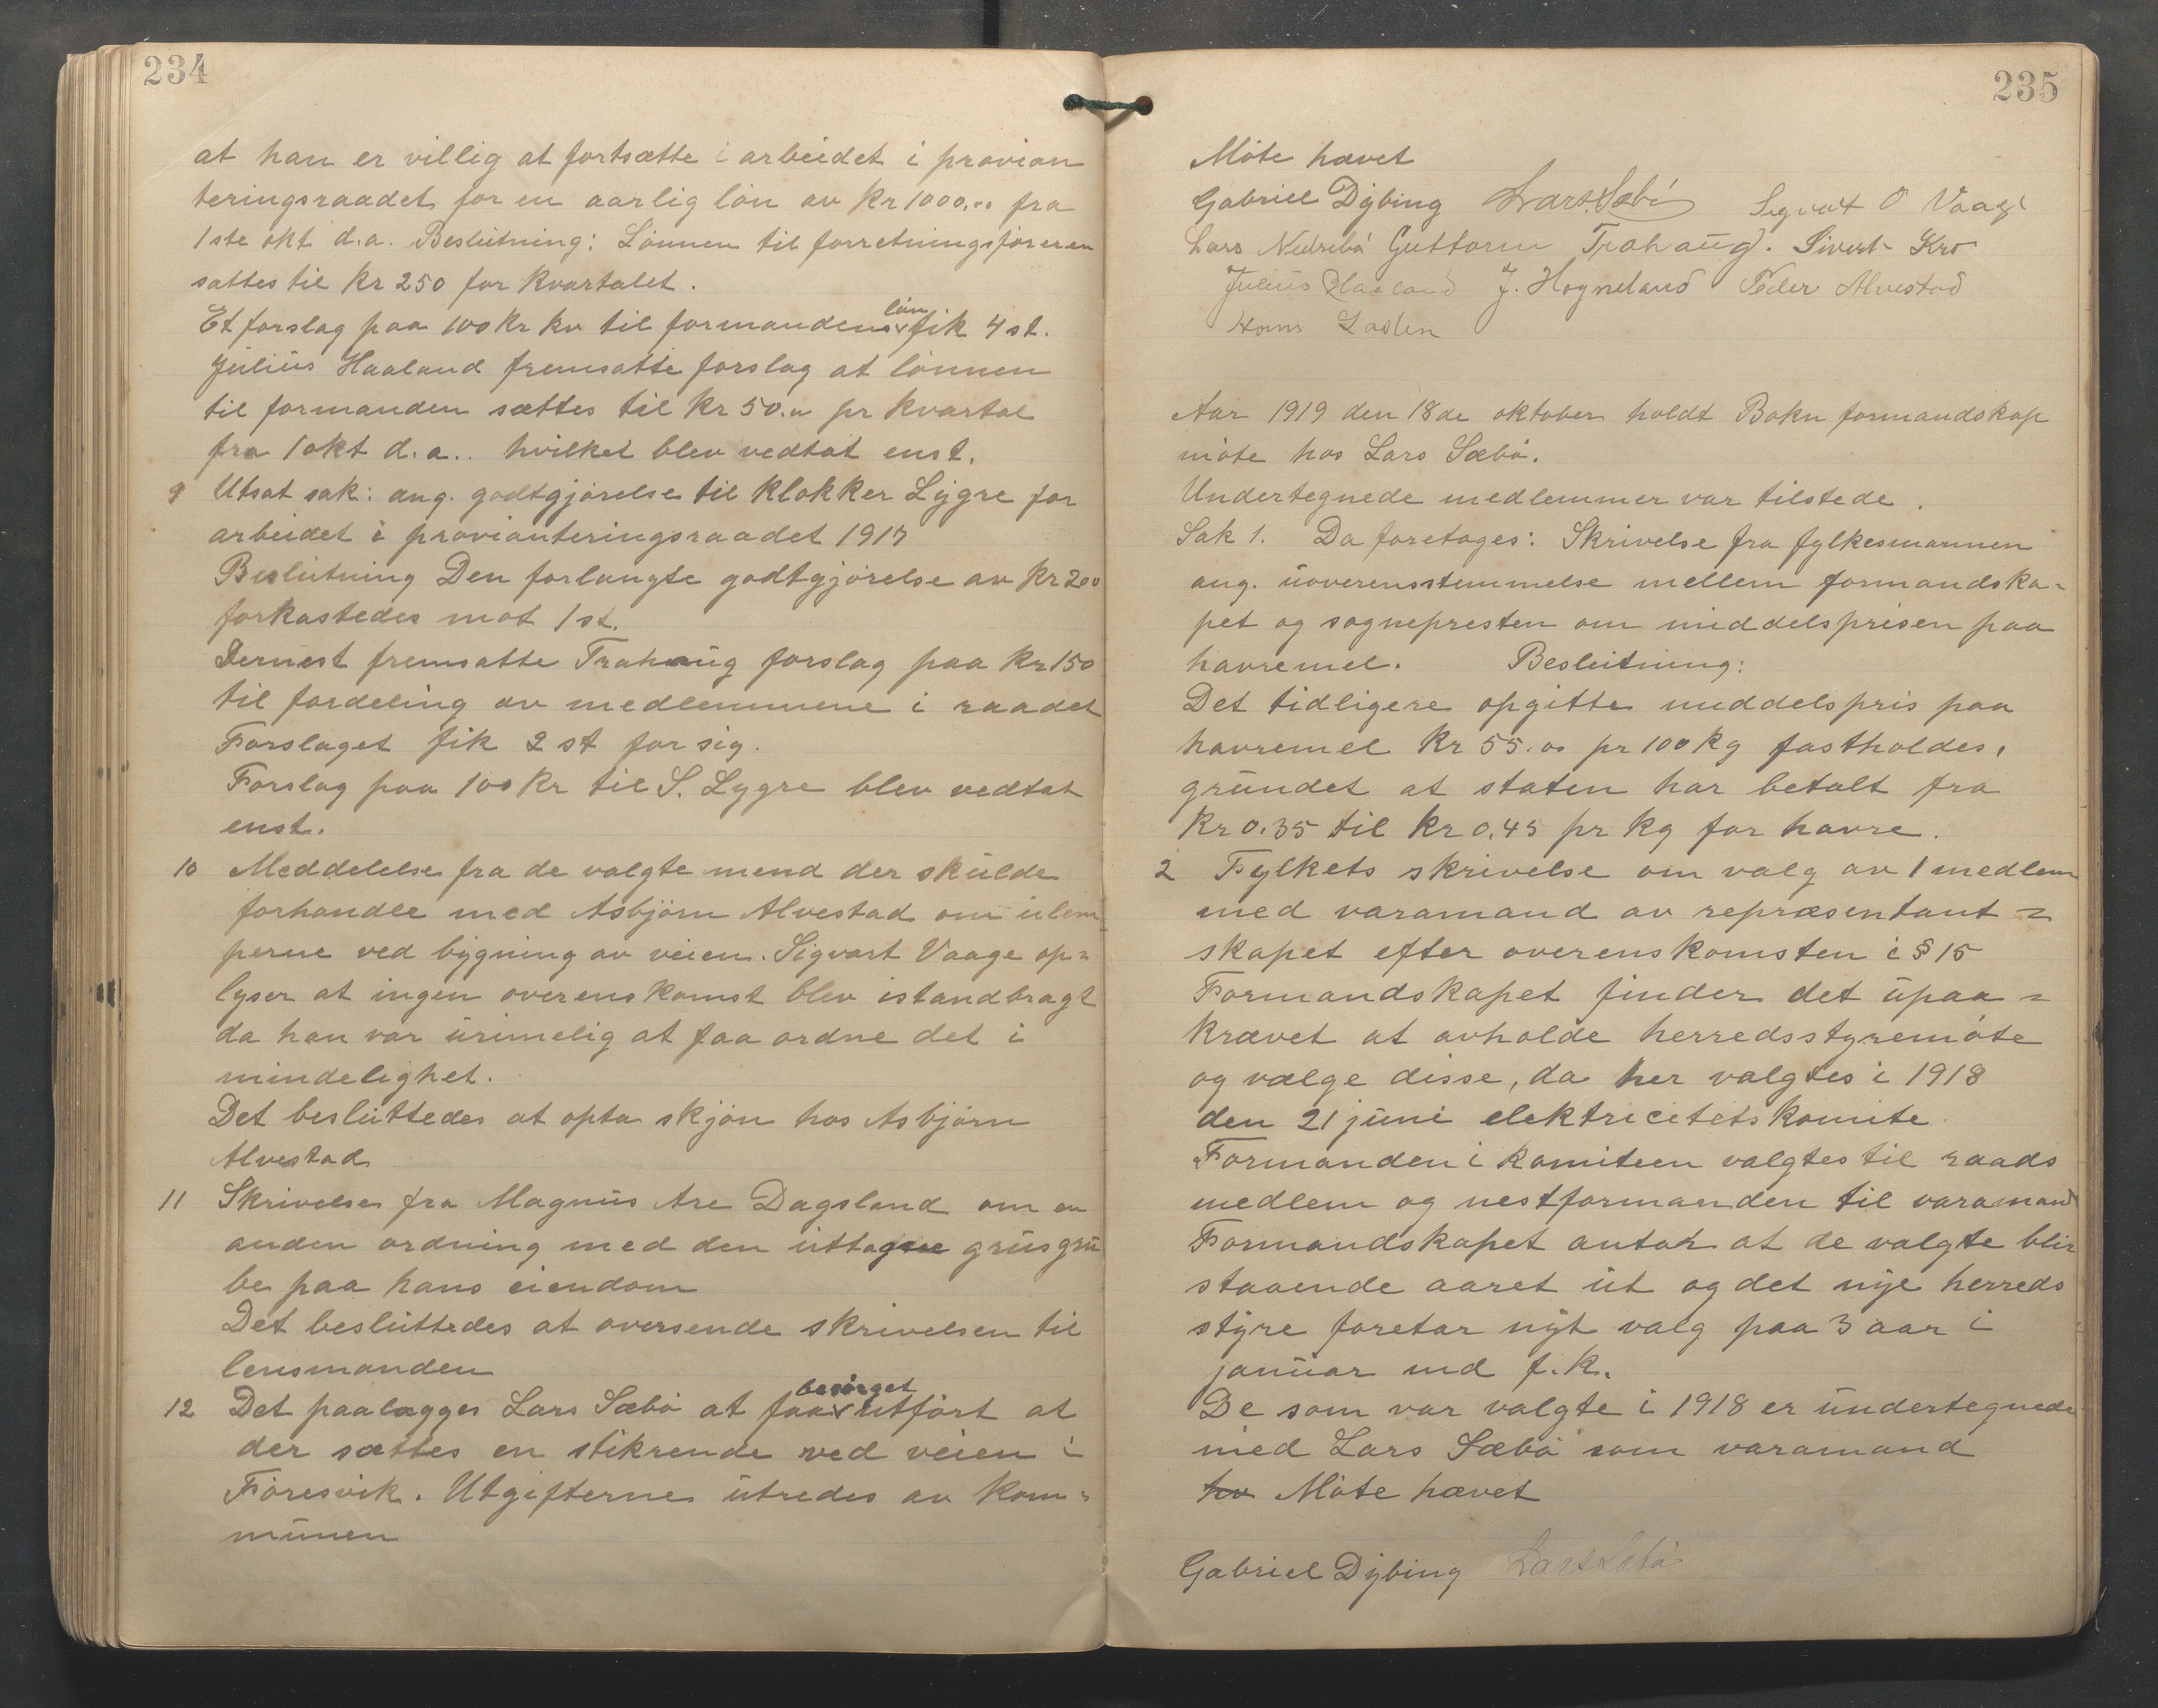 234
at han er villig at fortsætte i arbeidet i provian
teringsraadet for en aarlig løn av kr 1000.00 fra
1ste okt d.a. Beslutning: Lønnen til forretningsføreren
sattes til kr 250 for kvartalet.
Et forslag paa 100 kr kv til formandens løn fik 4 st.
Julius Haaland fremsatte forslag at lønnen
til formanden sættes til kr 50.00 pr kvartal
fra 1 okt d.a.. hvilket blev vedtat enst.
9 Utsat sak: ang. godtgjørelse til klokker Lygre for
arbeidet i provianteringsraadet 1917
Beslutning Den forlangte godtgjørelse av kr 200
forkastedes mot 1 st.
Dernest fremsatte Trahaug forslag paa kr 150
til fordeling av medlemmene i raadet
Forslaget fik 2 st for sig.
Forslag paa 100 kr til S. Lygre blev vedtat
enst.
10 Meddelelse fra de valgte mend der skulde
forhandle med Asbjørn Alvestad om ulem
perne ved bygning av veien. Sigvart Vaage op=
lyser at ingen overenskomst blev istandbragt
da han var urimelig at faa ordne det i
mindelighet.
Det besluttedes at opta skjøn hos Asbjørn
Alvestad
11 Skrivelse fra Magnus Are Dagsland om en
anden ordning med den uttagne grusgru
be paa hans eiendom
Det besluttedes at oversende skrivelsen til
lensmanden
12 Det paalægges Lars Sæbø at faa besørget utført at
der sættes en stikrende ved veien i
Føresvik. Utgifterne utredes av kom=
munen
235
Møte hævet
Gabriel Dybing Lars Sæbø Sigvart O Vaage
Lars Nedrebø Guttorm Trahaug. Sivert Kro
Julius Haaland J. Hogneland Peder Alvestad
Hans Loden
Aar 1919 den 18de oktober holdt Bokn formandskap
møte hos Lars Sæbø.
Undertegnede medlemmer var tilstede.
Sak 1. Da foretoges: Skrivelse fra fylkesmannen
ang. uoverensstemmelse mellem formandska=
pet og sognepresten om middelsprisen paa
havremel. Beslutning:
Det tidligere opgitte middelspris paa
havremel kr 55.00 pr 100 kg fastholdes,
grundet at staten har betalt fra
kr 0.35 til kr 0.45 pr kg for havre.
2 Fylkets skrivelse om valg av 1 medlem
med varamand av repræsentant=
skapet efter overenskomsten i § 15
Formandskapet finder det upaa=
krævet at avholde herredsstyremøte
og vælge disse, da her valgtes i 1918
den 21 juni elektricitetskomite.
Formanden i komiteen valgtes til raads
medlem og nestformanden til varamand
Formandskapet antok at de valgte blir
staaende aaret ut og det nye herreds
styre foretar nyt valg paa 3 aar i
januar md f.k.
De som var valgte i 1918 er undertegnede
med Lars Sæbø som varamand
hv Møte hævet
Gabriel Dybing Lars Sæbø